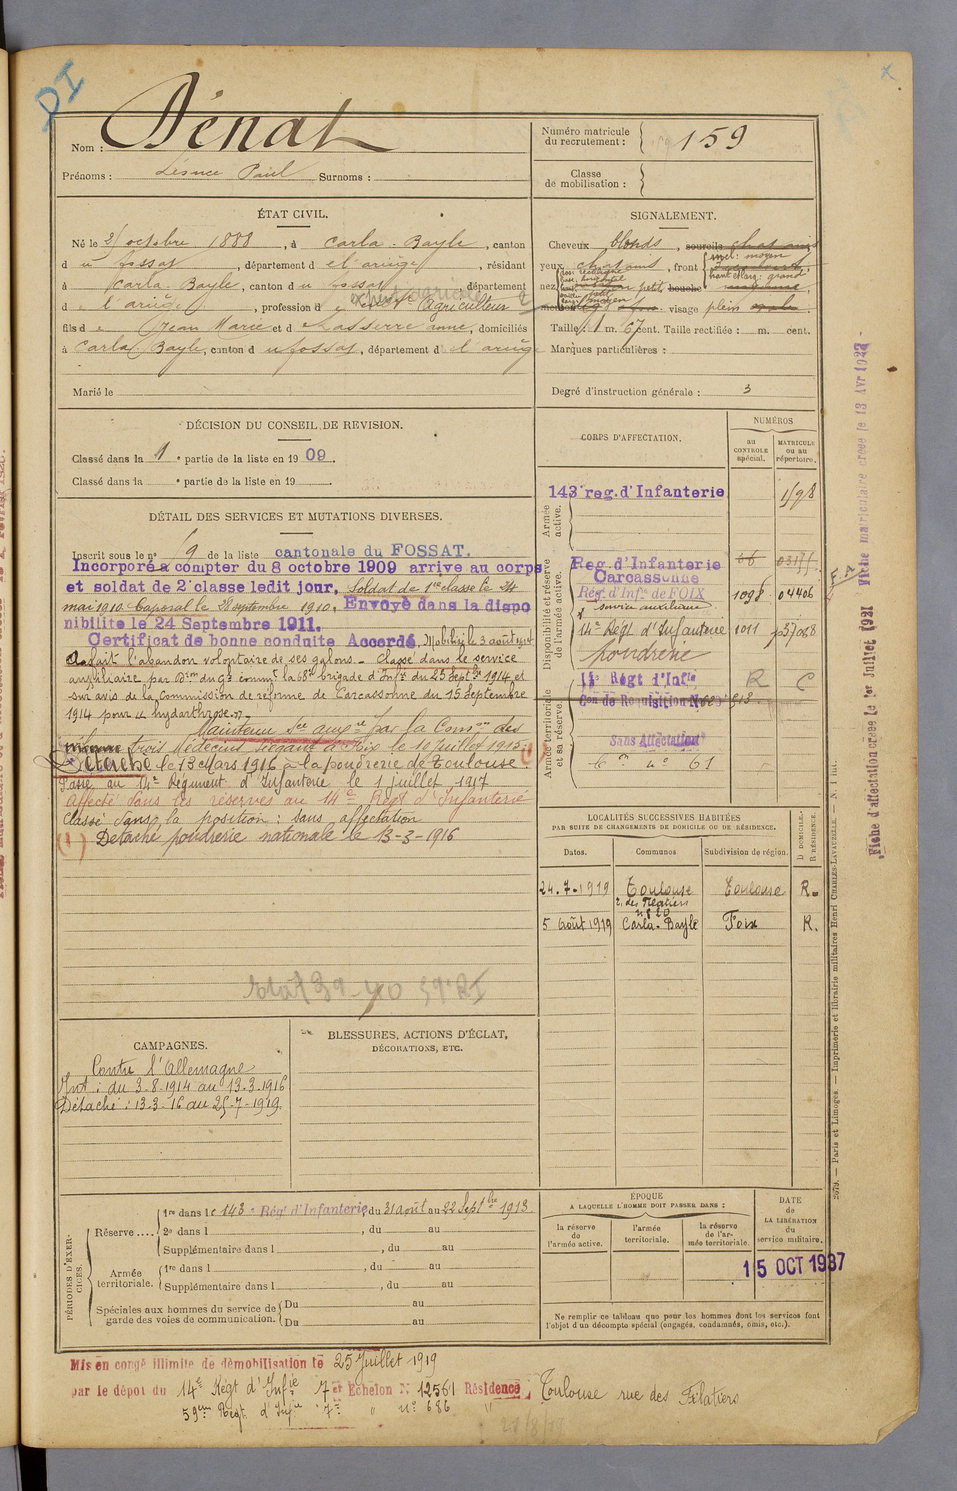 DI
Nom : Dénat
Prénoms : Léonce Paul Surnoms :
Numéro matricule
du recrutement : 159
Classe
de mobilisation :
ÉTAT CIVIL.
Né le 2 octobre 1888, à Carla-Bayle, canton
du fossat, département de l'ariège, résidant
à Carla-Bayle, canton du fossat, département
de l'ariège, profession de agriculteur
fils de Jean Marie et de Lasserre anne, domiciliés
à Carla-Bayle, canton du fossat, département de l'ariège
Marié le
SIGNALEMENT.
Cheveux blonds, sourcils chatains
yeux chatains, front incl: moyen
haut: grand
nez petit, bouche moyenne,
menton visage plein
Taille : 1 m. 67 cent. Taille rectifiée : m. cent.
Marques particulières :
Degré d'instruction générale : 3
DÉCISION DU CONSEIL DE REVISION.
Classé dans la 1e partie de la liste en 1909.
Classé dans la e partie de la liste en 19
DÉTAIL DES SERVICES ET MUTATIONS DIVERSES.
Inscrit sous le n° 9 de la liste cantonale du FOSSAT.
Incorporé à compter du 8 octobre 1909 arrive au corps
et soldat de 2e classe ledit jour. Soldat de 1re classe le 24
mai 1910. Caporal le 28 septembre 1910. Envoyé dans la dispo
nibilité le 24 Septembre 1911.
Certificat de bonne conduite Accordé. Mobilisé le 3 août 1914
A fait l'abandon volontaire de ses galons - Classé dans le service
auxiliaire par Don du Gal commt la 68e brigade d'Infie du 25 Septbre 1914 et
sur avis de la Commission de réforme de Carcassonne du 15 Septembre
1914 pour "hydarthrose."
Maintenu Sce auxre par la Comon des
trois Médecins siégeant à Foix le 10 juillet 1915.
Détaché le 13 Mars 1916 à la poudrerie de Toulouse. (1)
Passé au 14e Régiment d'Infanterie le 1 juillet 1917
Affecté dans les réserves au 14e Régt d'Infanterie
Classé dans la position : sans affectation
(1) Détaché poudrerie nationale le 13-3-1916
CORPS D'AFFECTATION.
NUMÉROS
au
CONTROLE
spécial.
MATRICULE
ou au
répertoire.
Armée
active.
143e reg. d'Infanterie
Disponibilité et réserve
de l'armée active.
Reg. d'Infanterie
Carcassonne
Rég. d'Infie de FOIX 1098 04406
service auxiliaire
14e Régt d'Infanterie 1011
poudrerie
Armée territoriale
et sa réserve.
Régt d'Infie R C
Con de Requisition N°
Sans Affectation
Con n° 61
LOCALITÉS SUCCESSIVES HABITÉES
PAR SUITE DE CHANGEMENTS DE DOMICILE OU DE RÉSIDENCE.
Dates. Communes Subdivision de région. D DOMICILE. R RÉSIDENCE.
24-7-1919 Toulouse Toulouse R.
r. des Filatiers
n° 20
5 Août 1919 Carla-Bayle Foix R.
CAMPAGNES.
Contre l'Allemagne
Int : du 3-8-1914 au 13-3-1916
Détaché : 13-3-16 au 25-7-1919
BLESSURES, ACTIONS D'ÉCLAT,
DÉCORATIONS, ETC.
PÉRIODES D'EXERCICES.
Réserve....
1re dans le 143e Rég. d'Infanterie du 31 août au 22 Septbre 1913.
2e dans l , du au
Supplémentaire dans l , du au
Armée
territoriale.
1re dans l , du au
Supplémentaire dans l , du au
Spéciales aux hommes du service de
garde des voies de communication.
Du au
Du au
ÉPOQUE
A LAQUELLE L'HOMME DOIT PASSER DANS :
la réserve
de
l'armée active.
l'armée
territoriale.
la réserve
de l'ar-
mée territoriale.
DATE
de
LA LIBÉRATION
du
service militaire.
15 OCT 1937
Ne remplir ce tableau que pour les hommes dont les services font
l'objet d'un décompte spécial (engagés, condamnés, omis, etc.).
Mis en congé illimité de démobilisation le 25 Juillet 1919
par le dépôt du 14e Régt d'Infie 7e Echelon N° 12561 Résidence Toulouse rue des Filatiers
59em Régt d'Infie 7e " n° 686 "
Fiche matriculaire créée le 13 Avr 1927
Fiche d'affectation créée le 1er Juillet 1921
2679. — Paris et Limoges. — Imprimerie et librairie militaires Henri CHARLES-LAVAUZELLE.